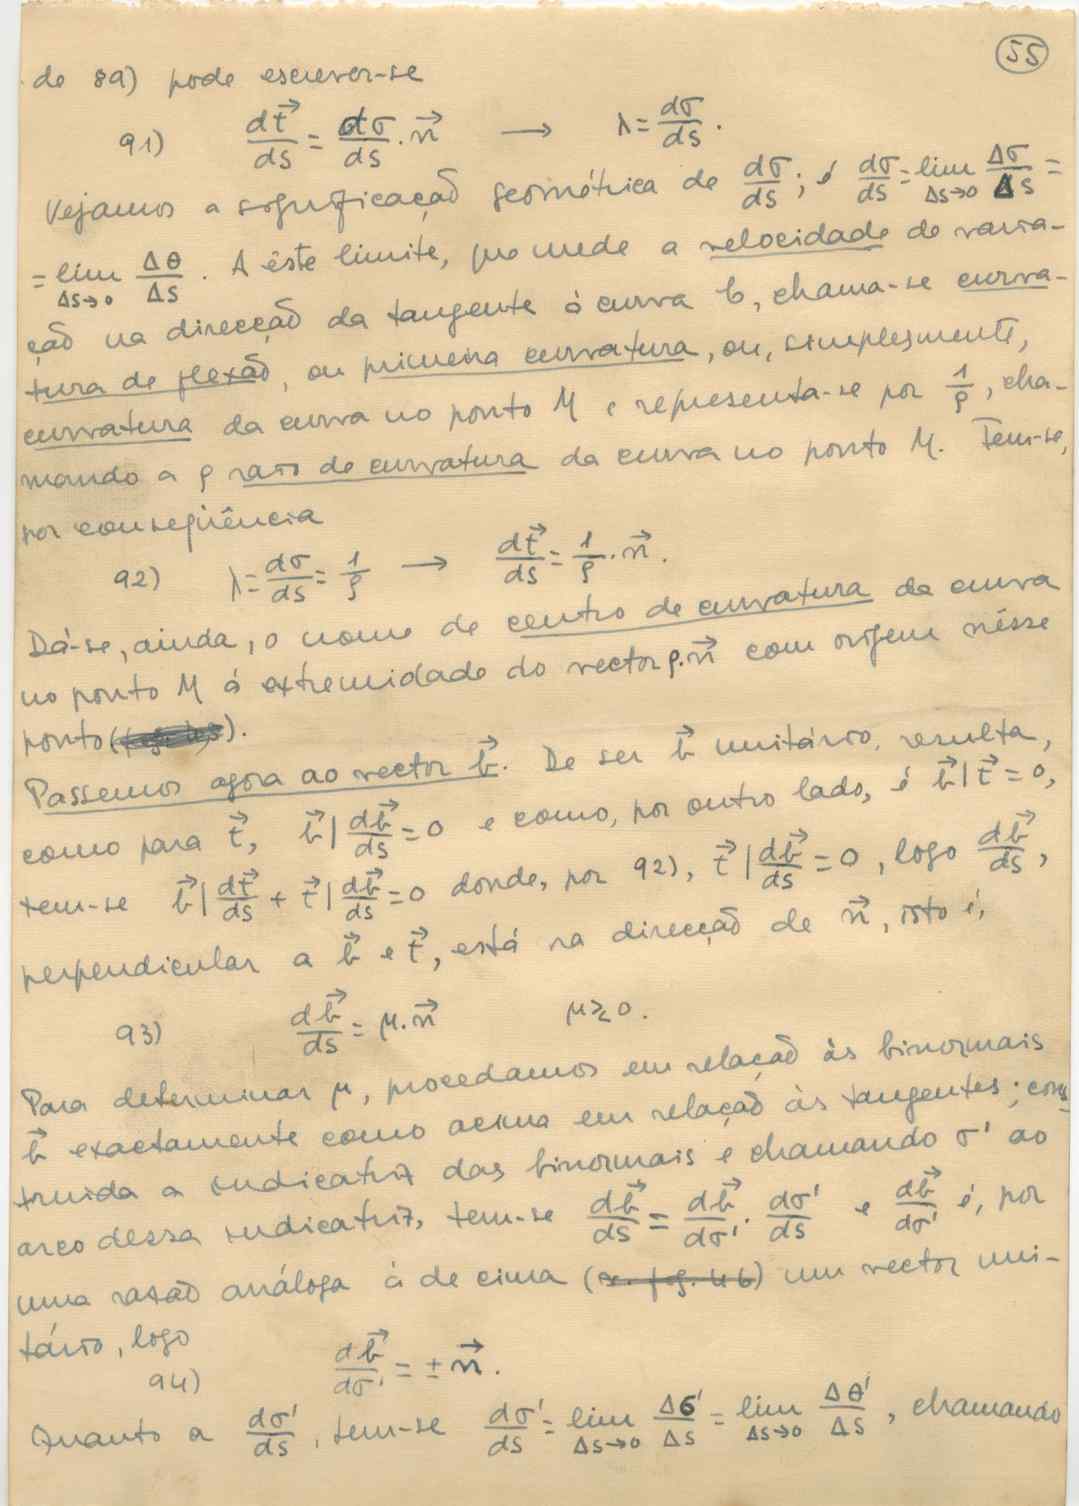 55
de 89) pode escrever-se
91) dt⃗/ds = dσ/ds · n⃗ → λ = dσ/ds.
Vejamos a significação geométrica de dσ/ds; é dσ/ds = lim Δs→0 Δσ/Δs =
= lim Δs→0 Δθ/Δs. A êste limite, que mede a velocidade de varia-
ção na direcção da tangente à curva C, chama-se curva-
tura de flexão, ou primeira curvatura, ou, simplesmente,
curvatura da curva no ponto M e representa-se por 1/ρ, cha-
mando a ρ raio de curvatura da curva no ponto M. Tem-se,
por conseqüência
92) λ = dσ/ds = 1/ρ → dt⃗/ds = 1/ρ · n⃗.
Dá-se, ainda, o nome de centro de curvatura da curva
no ponto M à extremidade do vector ρ.n⃗ com origem nêsse
ponto ( ).
Passemos agora ao vector b⃗. De ser b⃗ unitário, resulta,
como para t⃗, b⃗ | db⃗/ds = 0 e como, por outro lado, é b⃗ | t⃗ = 0,
tem-se b⃗ | dt⃗/ds + t⃗ | db⃗/ds = 0 donde, por 92), t⃗ | db⃗/ds = 0, logo db⃗/ds,
perpendicular a b⃗ e t⃗, está na direcção de n⃗, isto é,
93) db⃗/ds = μ.n⃗ μ ≷ 0.
Para determinar μ, procedamos em relação às binormais
b⃗ exactamente como acima em relação às tangentes; cons-
truida a indicatriz das binormais e chamando σ' ao
arco dessa indicatriz, tem-se db⃗/ds = db⃗/dσ' · dσ'/ds e db⃗/dσ' é, por
uma razão análoga à de cima (v. fig. 46) um vector uni-
tário, logo
94) db⃗/dσ' = ± n⃗.
Quanto a dσ'/ds, tem-se dσ'/ds = lim Δs→0 Δσ'/Δs = lim Δs→0 Δθ'/Δs, chamando